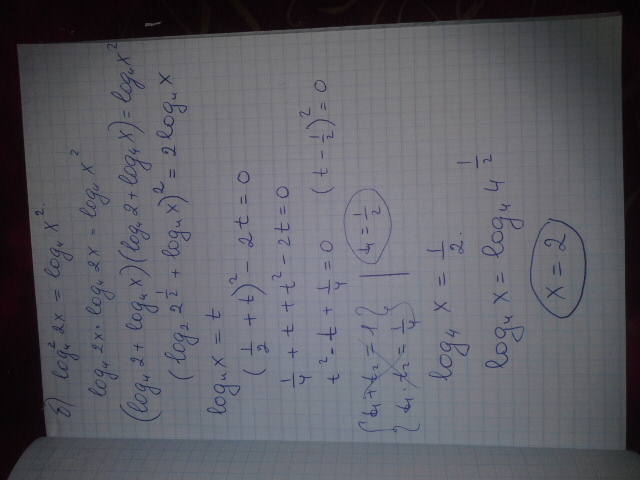 б) log₄² 2x = log₄ x².
log₄ 2x · log₄ 2x = log₄ x²
(log₄ 2 + log₄ x)(log₄ 2 + log₄ x) = log₄ x²
(log₂ 2^½ + log₄ x)² = 2 log₄ x
log₄ x = t
(1/2 + t)² - 2t = 0
1/4 + t + t² - 2t = 0
t² - t + 1/4 = 0 (t - 1/2)² = 0
{ t₁ + t₂ = 1 } | t₁ = 1/2
{ t₁ · t₂ = 1/4 }
log₄ x = 1/2.
log₄ x = log₄ 4^½
x = 2